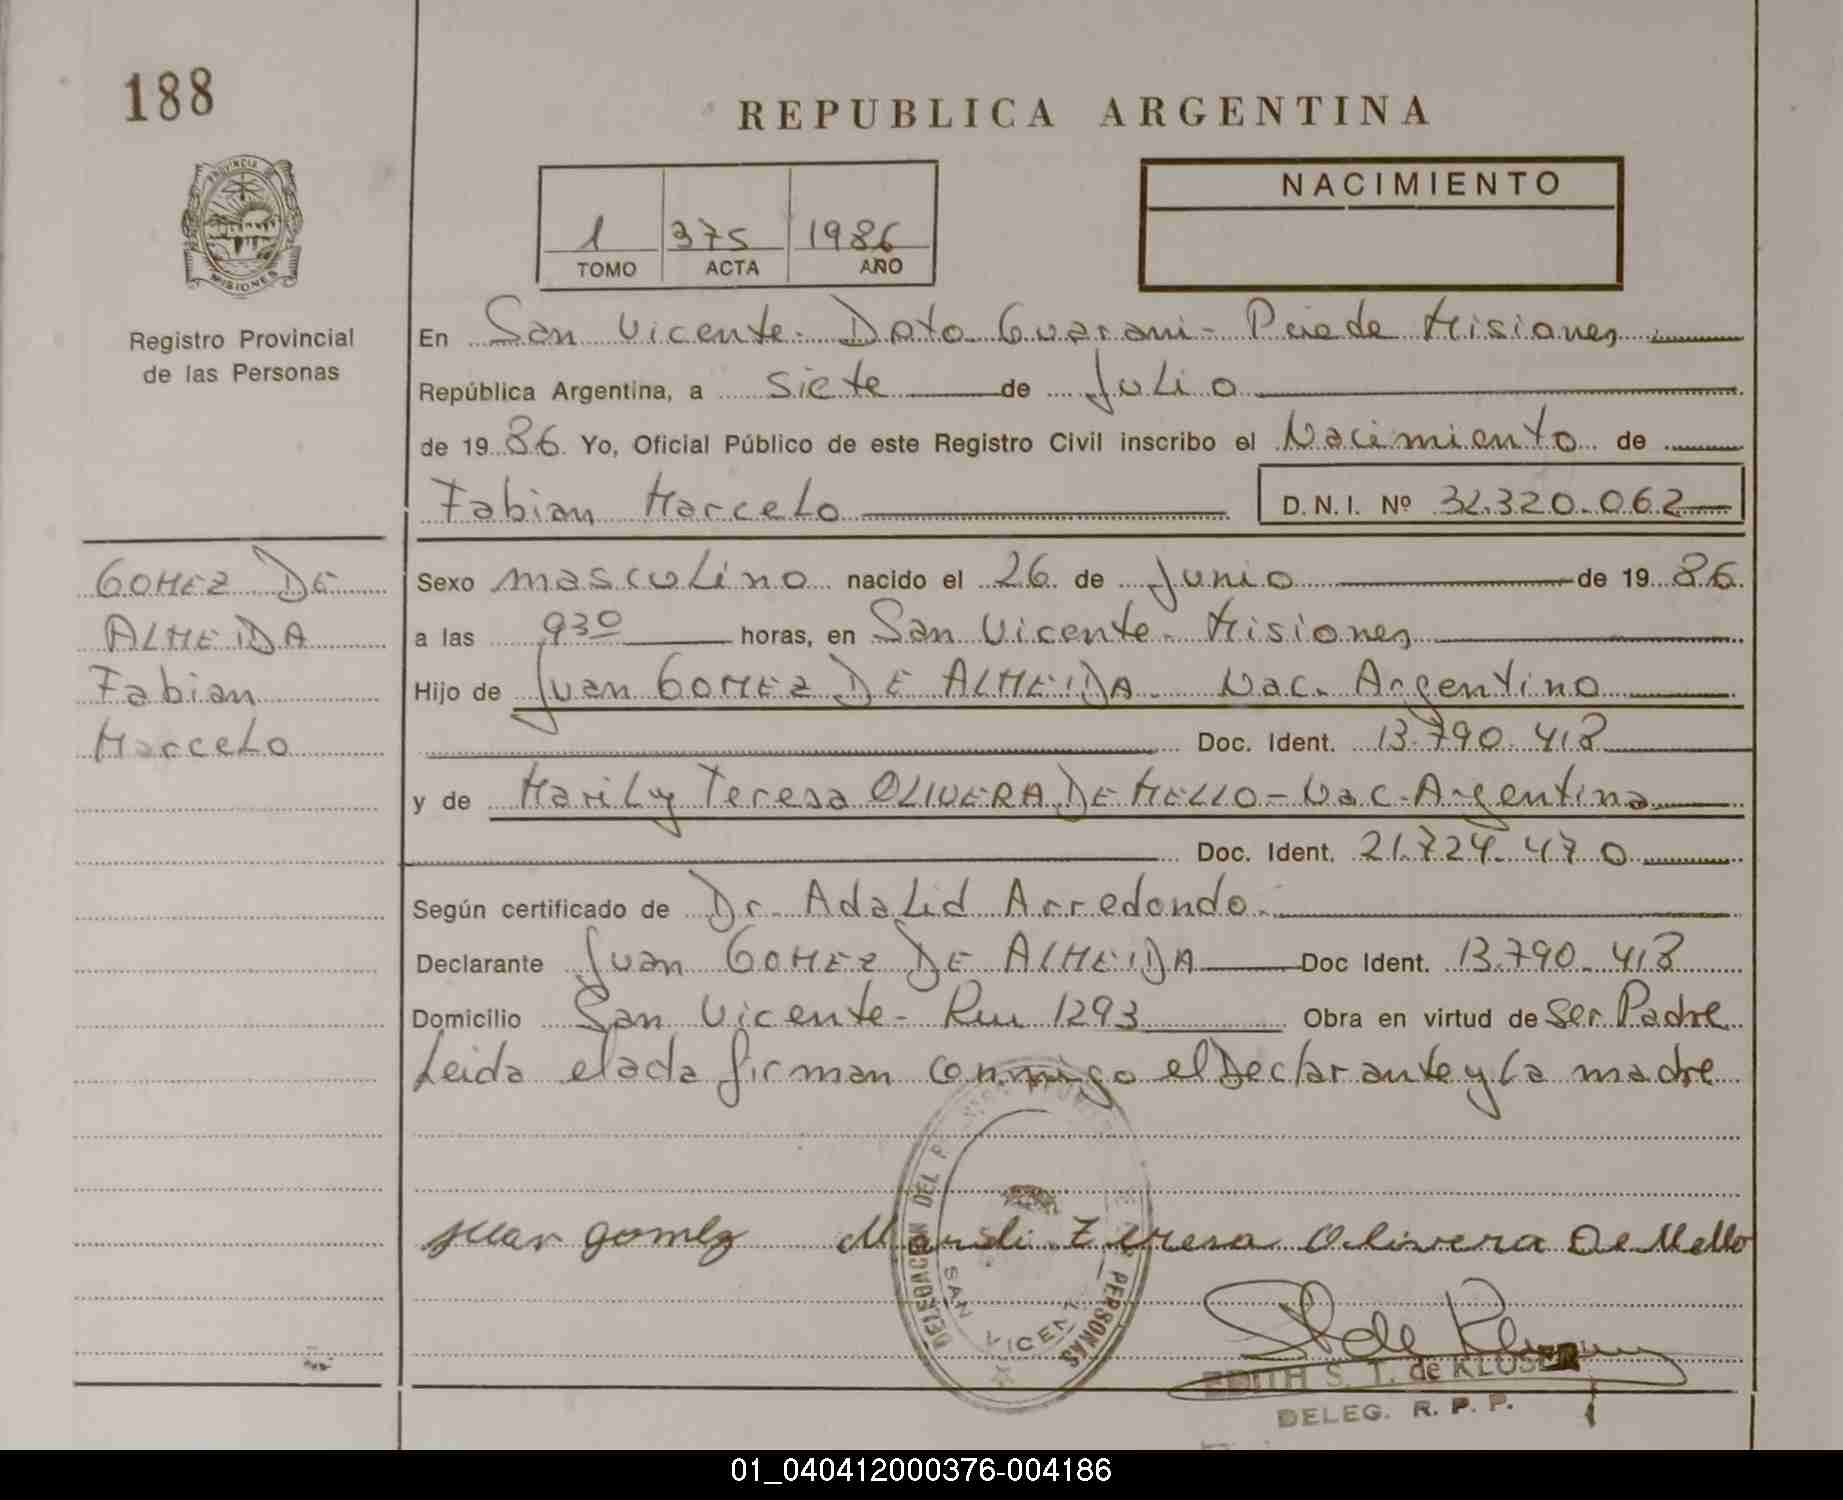 188
REPUBLICA ARGENTINA
PROVINCIA DE
MISIONES
Registro Provincial
de las Personas
1 375 1986
TOMO ACTA AÑO
NACIMIENTO
En San Vicente - Dpto Guarani - Pcia de Misiones
República Argentina, a siete de Julio
de 19 86 Yo, Oficial Público de este Registro Civil inscribo el Nacimiento de
Fabian Marcelo D.N.I. Nº 32.320.062
GOMEZ DE
ALMEIDA
Fabian
Marcelo
Sexo masculino nacido el 26 de Junio de 19 86.
a las 930 horas, en San Vicente - Misiones
Hijo de Juan GOMEZ DE ALMEIDA - Nac. Argentino
Doc. Ident. 13.790.418
y de Marily Teresa OLIVERA DE MELLO - Nac. Argentina
Doc. Ident. 21.724.470
Según certificado de Dr. Adalid Arredondo.
Declarante Juan GOMEZ DE ALMEIDA Doc Ident. 13.790.418
Domicilio San Vicente - 1293 Obra en virtud de Ser Padre
Leida el acta firman conmigo el Declarante y la madre
Juan gomez Marili Teresa Olivera De Mello
DELEGACION DEL PERSONAS
SAN VICENTE
EDITH S. T. de KLUSER
DELEG. R. P. P.
01_040412000376-004186